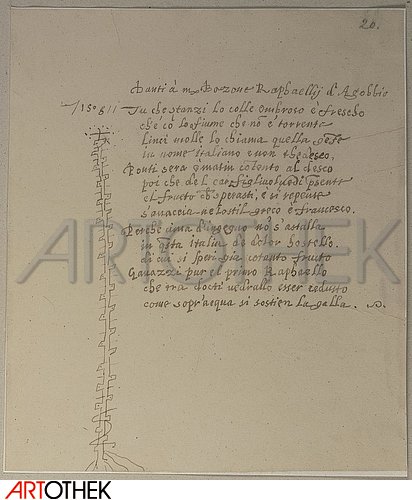 20.
Danti à m Bozone Raphaellj d'Agobbio
/15°6//
Tu che stanzi lo colle ombroso è frescho
che cò lo fiume che nõ è torrente
Linci molle lo chiama quella gẽte
in nome italiano e non thedesco,
Ponti sera e matin cõtento al desco
poi che del car figliuol vedi
el fructo che sperasti, e si repente
s'avaccia ne lo stil greco è francesco.
Perche cima d'ingegno nõ s'astalla
in Italia di dolor hostello.
di cui si speri già cotanto fructo
Gavazzi pur el primo Raphaello
che tra docti vedrallo esser
come sopr'acqua si sostien la galla.
ARTOTHEK
ARTOTHEK